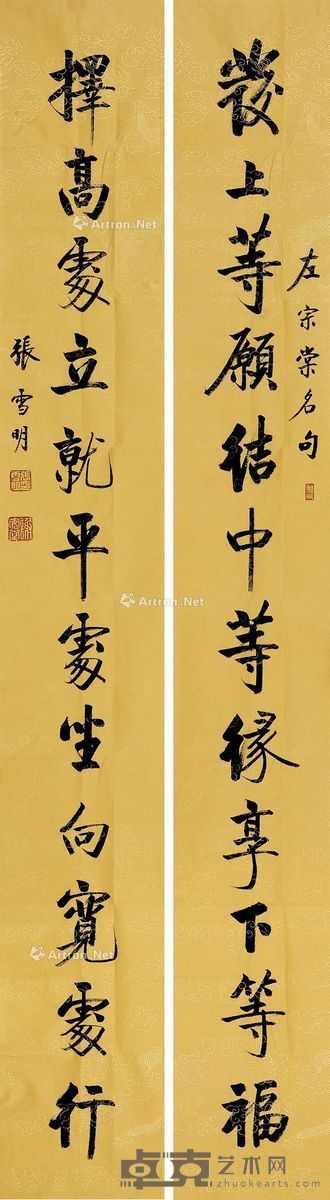 左宗棠名句
發上等願結中等緣享下等福
擇高處立就平處坐向寬處行
張雪明
Artron.Net
Artron.Net
Artron.Net
Artron.Net
Artron.Net
卓克艺术网
www.zhuokearts.com